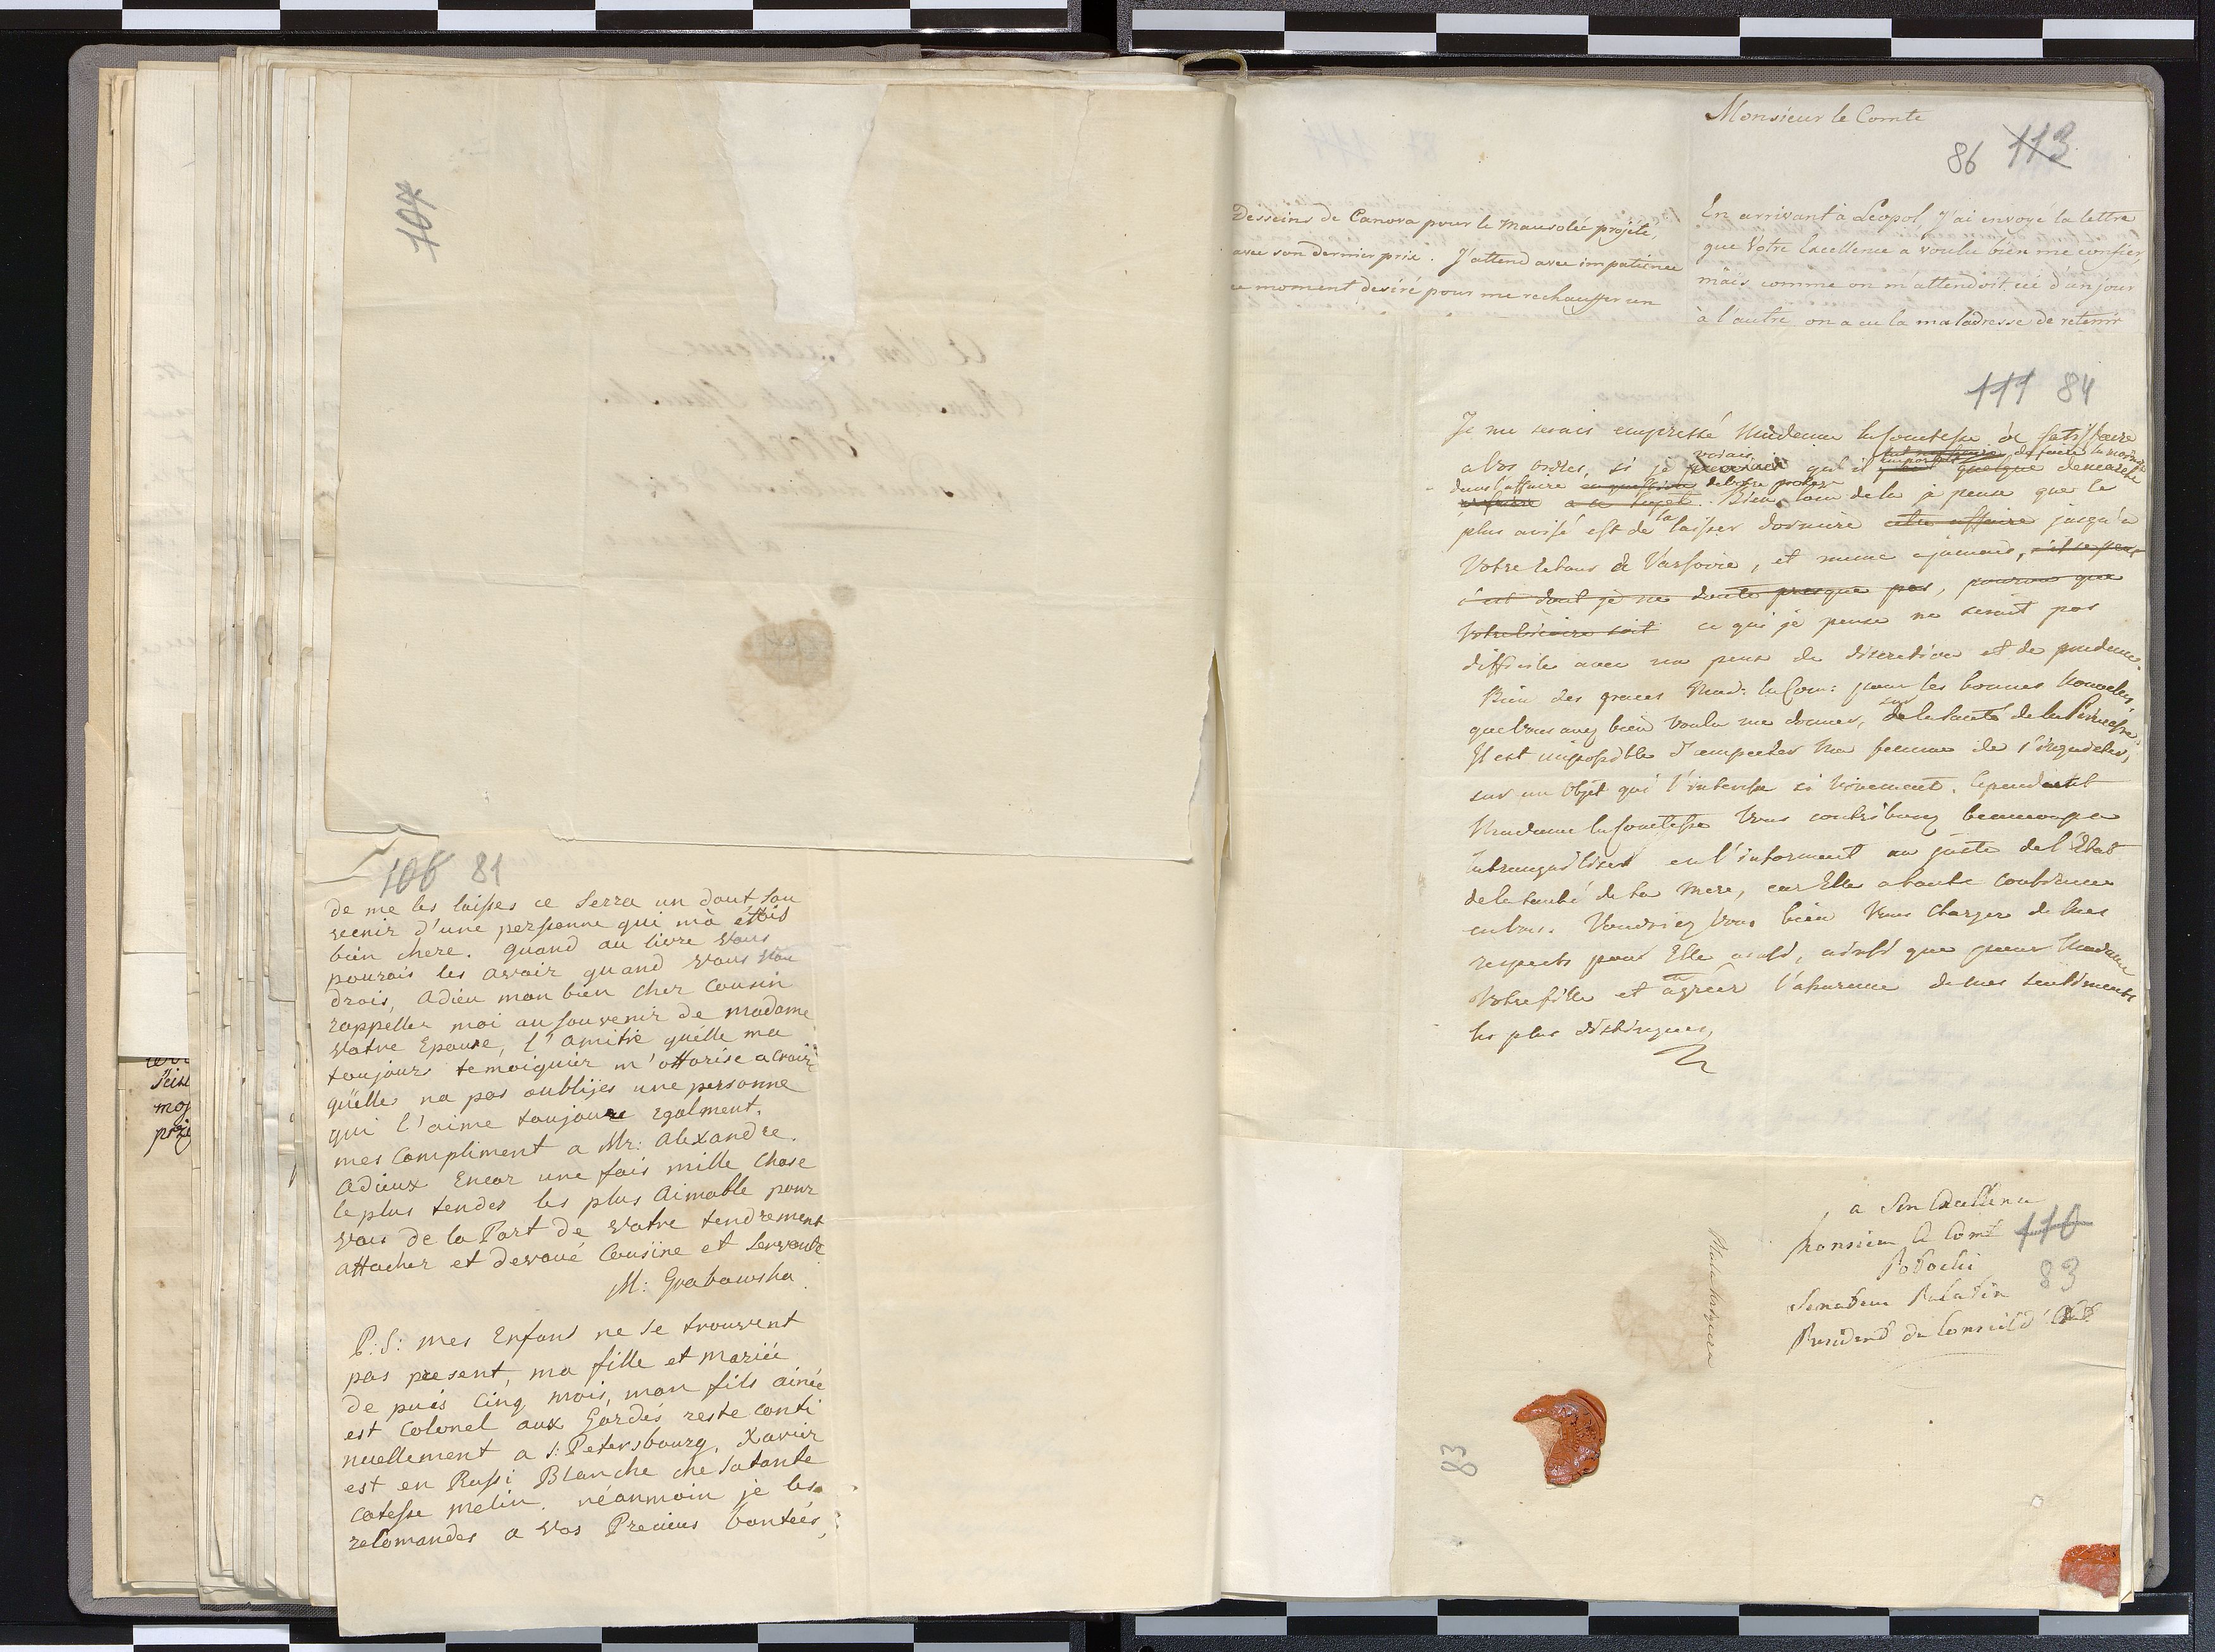 107
106 81
de me les laisser ce serra un dout sou
venir d'une personne qui m'à étois
bien chere. quand au livre vous
pourois les avoir quand vous vou
drois, adieu mon bien cher Cousin
rappeller moi au souvenir de madame
votre Epouse, l'amitié qu'elle ma
toujours temoignier m'ottorise a croire
qu'elles na pas oublijes une personne
qui l'aime toujoure Egalment.
mes Compliment a Mr: Alexandre.
Adieux Encor une fois mille Chose
le plus tendes les plus Aimable pour
vous de la Part de votre tendrement
attacher et devoué Cousine et servante
M: Grabowska
P:S: mes Enfans ne se trouvent
pas present, ma fille et mariée
de puis Cinq mois, mon fils ainée
est Colonel aux Gardes reste conti
nuellement a S: Petersbourg, Xavier
est en Russi Blanche che sa tante
Cotesse Melin. néanmoin je les
relomandes a vos Precieus bontées,
Desseins de Canova pour le Mausolée projété,
avec son dernier prix. J'attend avec impatience
ce moment desiré pour me rechauffer un
Monsieur le Comte
86 113
En arrivant à Léopol, j'ai envoyé la lettre
que Votre Excellence a voulu bien me confier,
mais comme on m'attendoit ici d'un jour
à l'autre, on a eu la maladresse de retenir
111 84
Je me serais empressé Madame la Comtesse de satisfaire
a Vos ordres, si je voiais qu'il importat de faire la moindre
quelque demarche
dans l'affaire de votre
a ce sujet. Bien loin de la je pense que le
plus avisé est de la laisser dormire cette affaire jusqu'a
Votre retour de Varsovie, et meme a jamais,
c'est dont je ne doute presque pas, pourvu que
Votre soit ce qui je pense ne serait pas
difficile avec un peu de discretion et de prudence.
Bien des graces Mad: la Com: pour les bonnes nouveles,
que Vous avez bien voulu me donner, sur la santé de la Princesse.
Il est impossible d'empecher ma femme de s'inquieter,
sur un Objet qui l'interesse si vivement. Cependant
Madame la Comtesse Vous contribuez beaucoup a
la tranquiliser en l'informant au juste de l'Etat
de la santé de sa Mere, car Elle a toute confiance
en Vous. Voudriez Vous bien Vous charger de mes
respects pour Elle aussi, ainsi que pour Madame
Votre fille et agréer l'assurance de mes sentiments
les plus distingués,
a Son Excellence
Monsieur le Comt 110
Potocki
83
Senateur Palatin
President du Conseil d'Etat
83